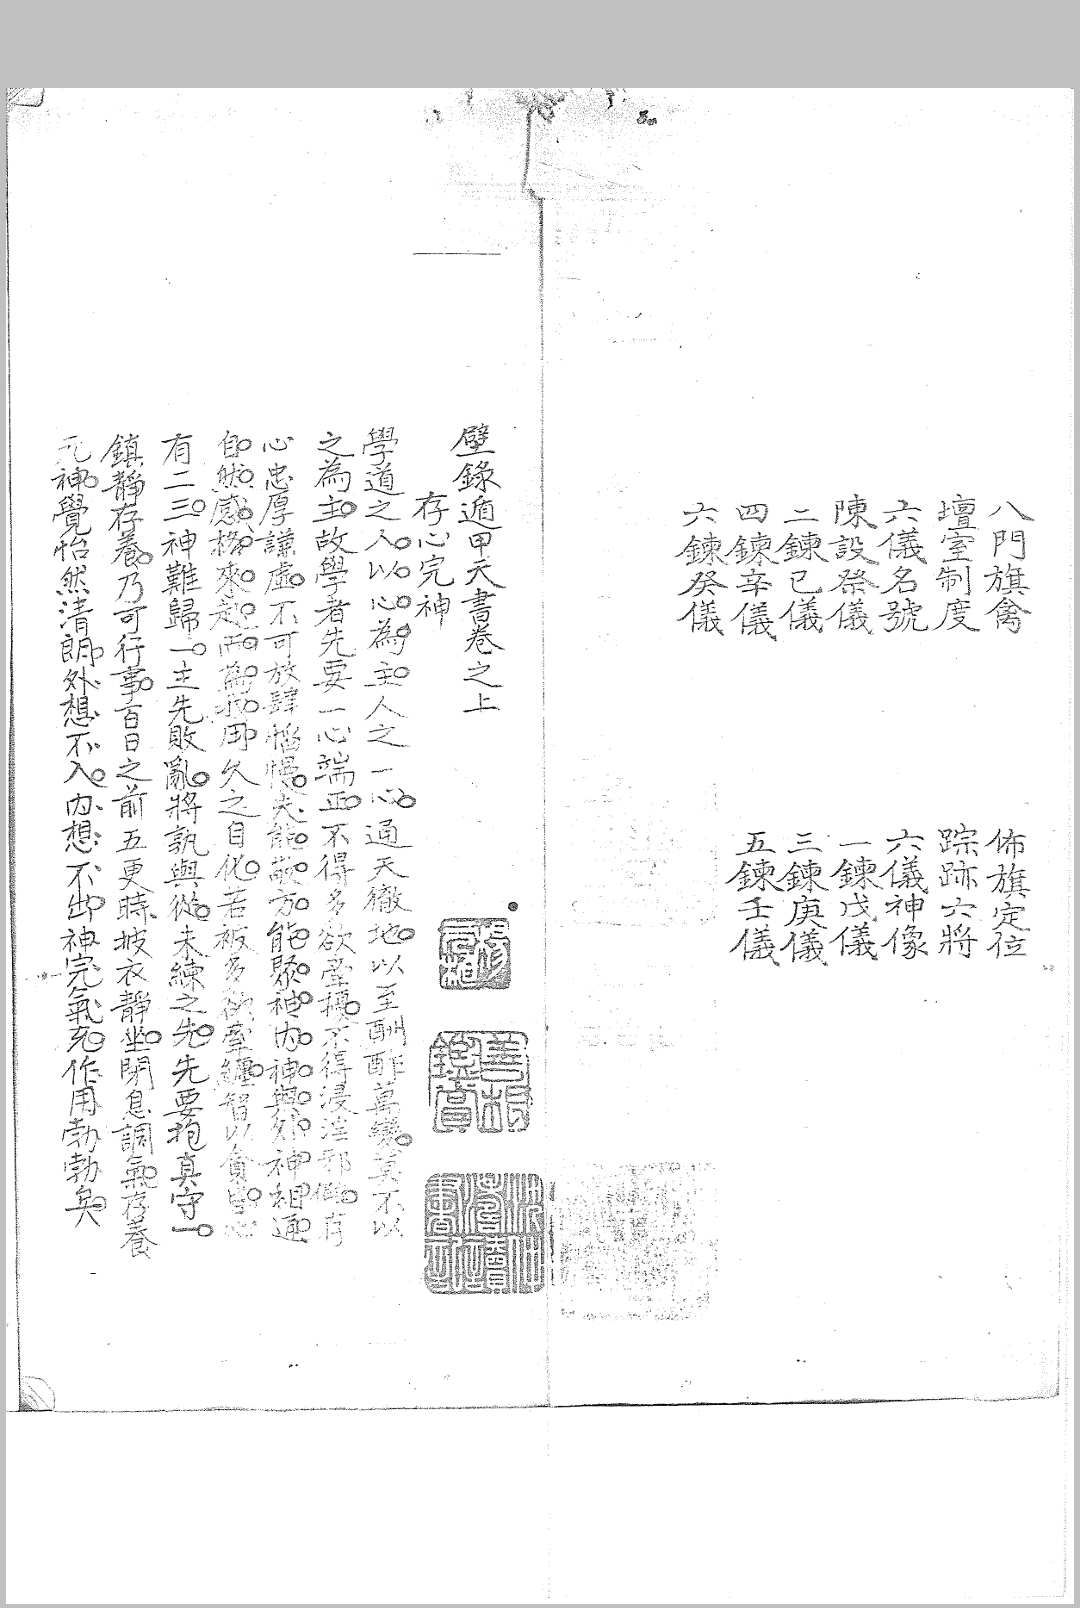 八門旗禽　佈旗定位
壇室制度　踪跡六將
六儀名號　六儀神像
陳設祭儀　一鍊戊儀
二鍊己儀　三鍊庚儀
四鍊辛儀　五鍊壬儀
六鍊癸儀
壁錄遁甲天書卷之上
存心完神
學道之人以心為主人之一心通天徹地以至酬酢萬變莫不以
之為主故學者先要一心端正不得多欲牽擾不得浸淫邪僻存
心忠厚謙虛不可放肆惰慢夫能敬方能聚神內神與外神相通
自然感格來赴而為我用久之自化若被多欲牽纏智以貪
有二三神難歸一主先敗亂將孰與從未練之先先要抱真守一
鎮靜存養乃可行事百日之前五更時披衣靜坐閉息調氣存養
元神覺怡然清朗外想不入內想不出神完氣充作用勃勃矣